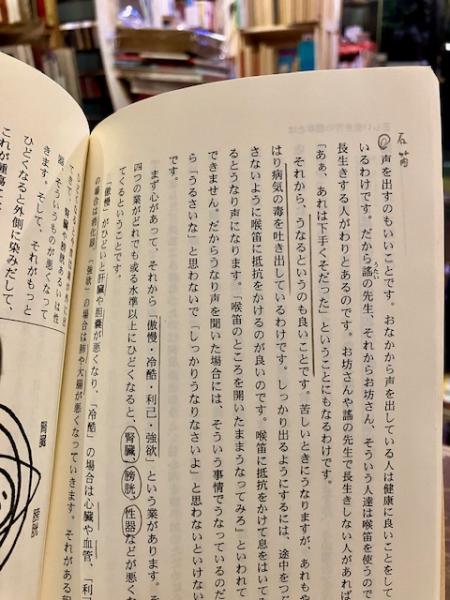 声を出すのもいいことです。おなかから声を出している人は健康に良いことをして
いるわけです。だから謠の先生、それからお坊さん、そういう人達は喉笛を使うので
長生きする人がわりとあるのです。お坊さんや謠の先生で長生きしない人があれば
「ああ、あれは下手くそだった」ということにもなるわけです。
それから、うなるというのも良いことです。苦しいときにうなりますが、あれもや
はり病気の毒を吐き出しているわけです。しっかり出るようにするには、途中をつぶ
さないように喉笛に抵抗をかけるのが良いのです。喉笛に抵抗をかけて息をはいてみ
るとうなり声になります。「喉笛のところを開いたままうなってみろ」といわれて
できません。だからうなり声を聞いた場合には、そういう事情でうなっているのだ
ら「うるさいな」と思わないで「しっかりうなりなさいよ」と思わないといけない
です。
まず心があって、それから「傲慢・冷酷・利己・強欲」という業があります。そ
四つの業がどれでも或る水準以上にひどくなると、腎臓、膀胱、性器などが悪くな
てくるということです。
「傲慢」がひどいと肝臓や胆嚢が悪くなり、「冷酷」の場合は心臓や血管、「利
の場合は消化器、「強欲」の場合は肺や大腸が悪くなっていきます。それがある程
器、腎臓や膀胱あるいは性
そういうものが悪くなって
きます。そして、それがもっと
ひどくなると外側に染みだして、
腎臓
膀胱